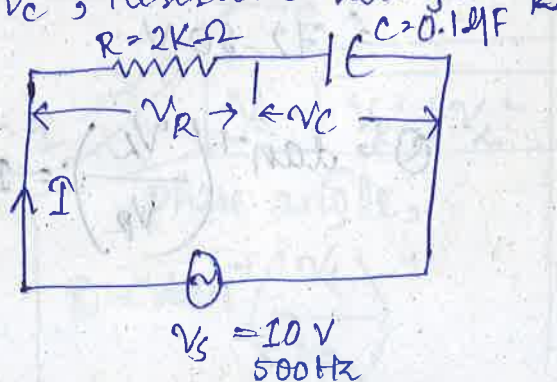 Vc,
R=2KΩ C=0.1µF
VR VC
I
Vs = 10 V
500Hz